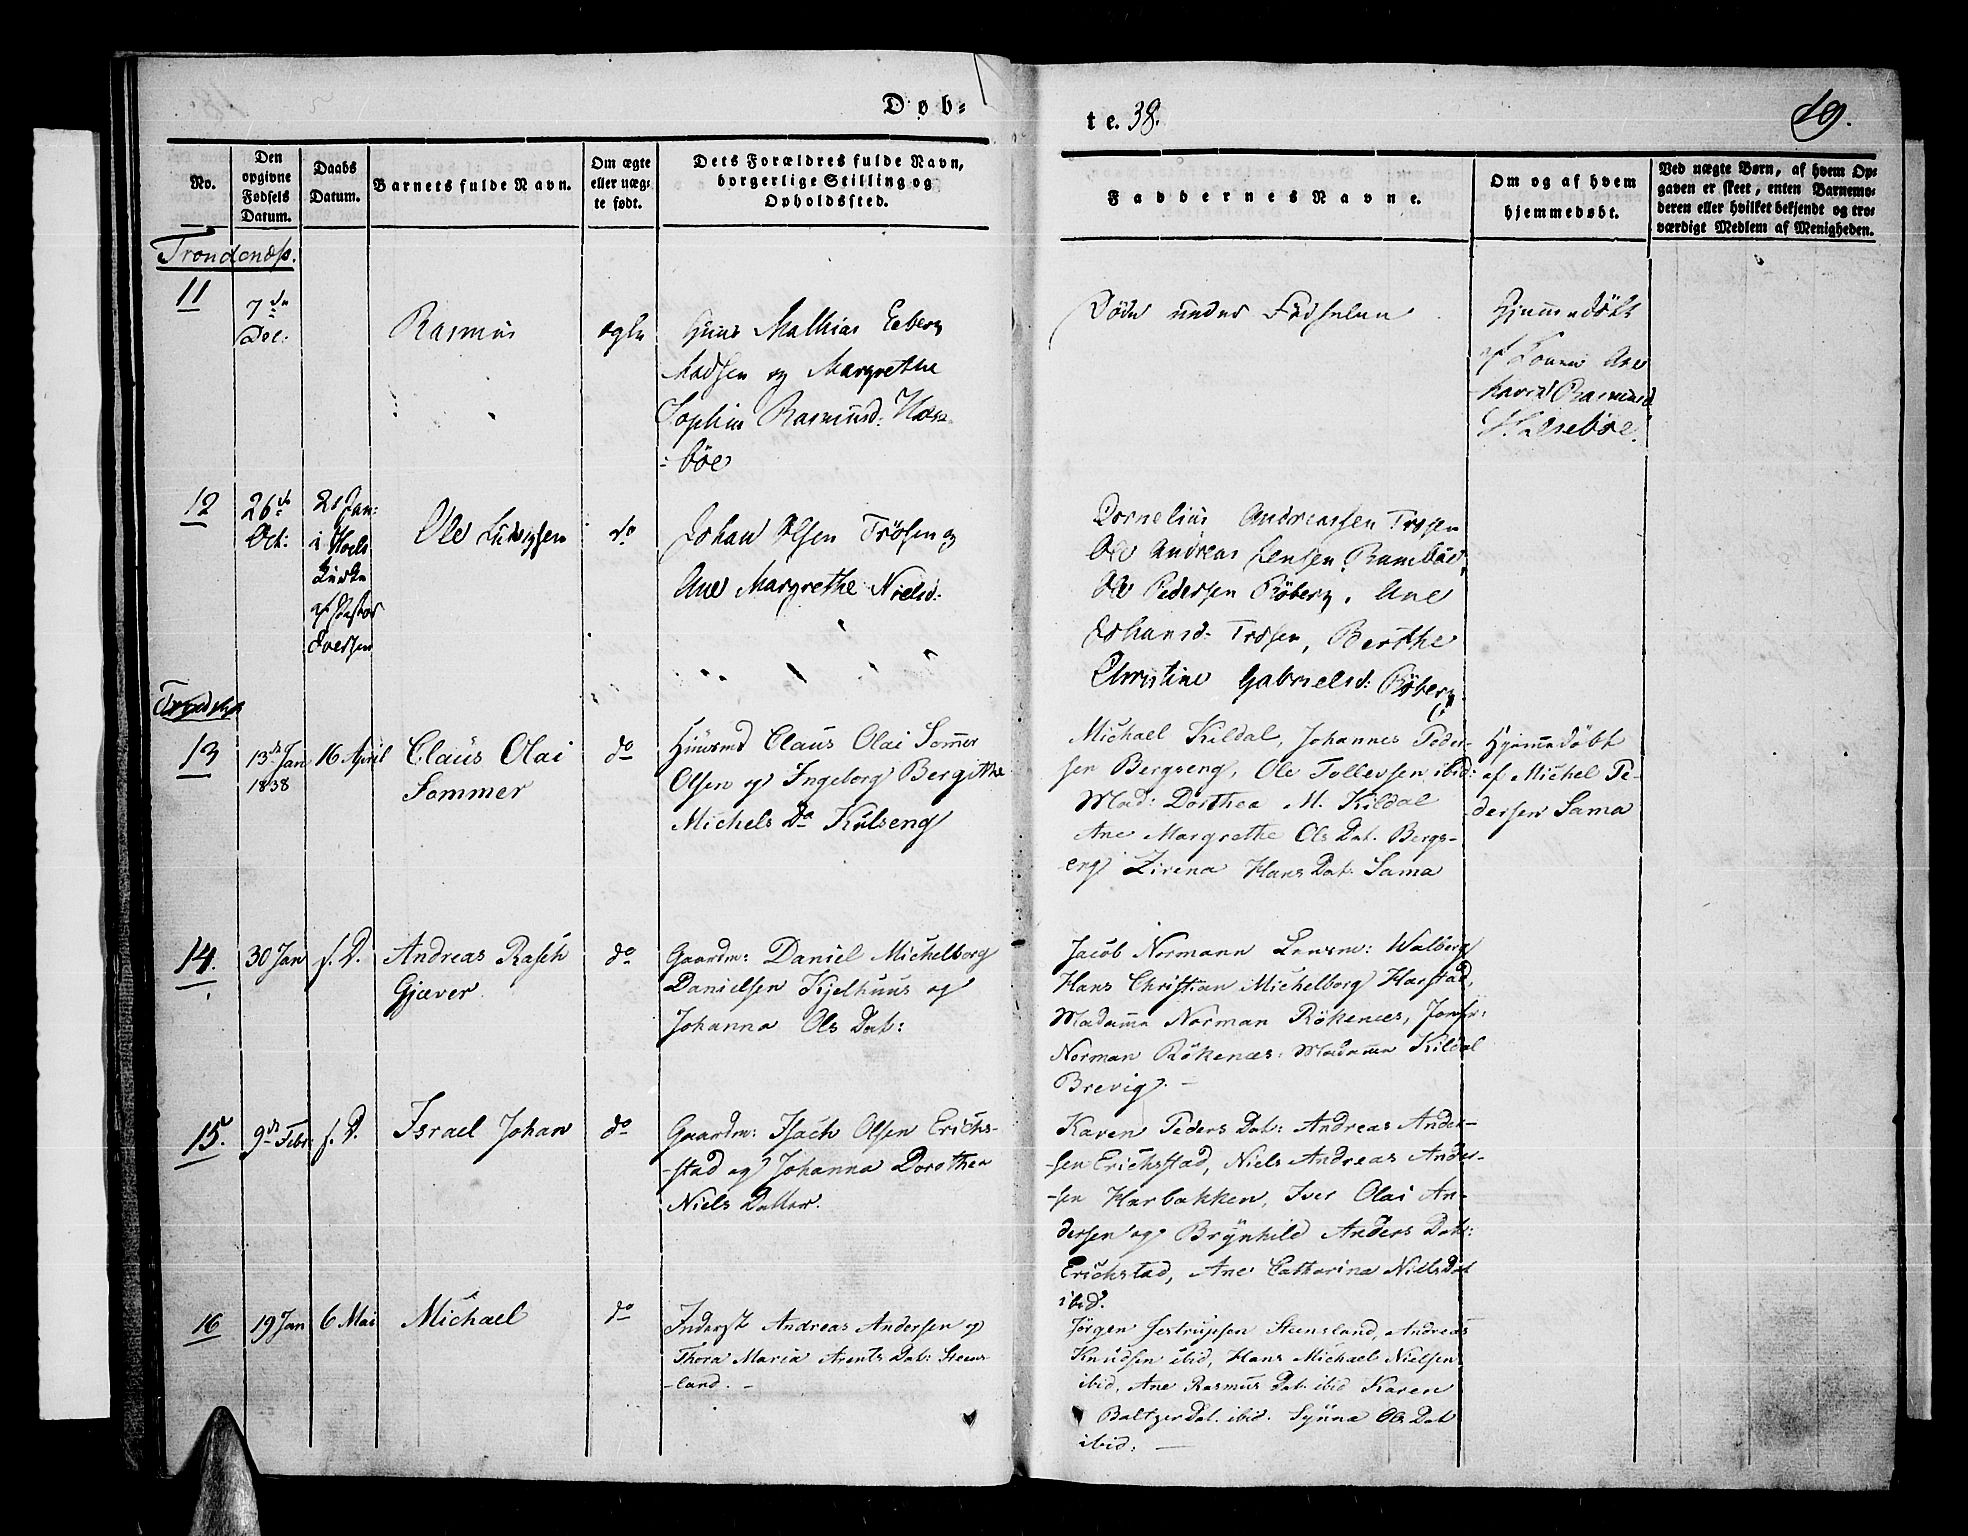 Døb-
te. 38.
19.
No.
Den opgivne Fødsels Datum.
Daabs Datum.
Barnets fulde Navn.
Om ægte eller uægte født.
Dets Forældres fulde Navn, borgerlige Stilling og Opholdssted.
Faddernes Navne.
Om og af hvem hjemmedøbt.
Ved uægte Børn, af hvem Opgaven er skeet, enten Barnemoderen eller hvilket bekjendt og troværdigt Medlem af Menigheden.
Trondenæs.
11
7de
Dec:
Rasmus
ægte
Mathias Eberg
Madsen og Margrethe
Sophie Rasmusd:
böe
Døde under Fødselen
Hjemmedöbt
af Ane
Rasmusd
12
26de
Oct:
21 Jan:
i
Kirke
af Pastor
Iversen
Ole Ludvigsen
do
Johan Olsen Trösen og
Ane Margrethe Nielsd:
Cornelius Andreassen Trösen
Ole Andreas Jensen
Ole Pedersen Röberg, Ane
Johansd: Trösen, Berthe
Christine Gabrielsd: Röberg.
13
13de Jan
1838
16 April
Claus Olai
Sommer
do
Huusmd Claus Olai Sommer
Olsen og Ingeborg Bergithe
Michels Da Kulseng
Michael Kildal, Johannes Peder-
sen Bergseng, Ole Tollevsen ibid:
Mad: Dorthea M. Kildal
Ane Margrethe Ols Dat. Bergs-
eng Zirena Hans Dat: Sama
Hjemmedöbt
af Michel Pe-
dersen Sama
14.
30 Jan
s. D.
Andreas Rasch
Gjæver
do
Gaardm: Daniel Michelborg
Danielsen Kjelhuus og
Johanna Ols Dat:
Jacob Normann Lensm:
Hans Christian Michelborg Harstad,
Madame Norman Rökenæs, Jomfr:
Norman Rökenæs: Madame Kildal
Brevig. -
15.
9de Febr:
s. D.
Israel Johan
do
Gaardm: Isach Olsen Erichs-
-stad og Johanna Dorothea
Niels Datter.
Karen Peders Dat: Andreas Ander-
-sen Erichstad, Niels Andreas Ander-
-sen Harbakken, Iver Olai An-
dersen og Brynhild Anders Dat:
Erichstad, Ane Catharina Niels Dat
ibid.
16
19 Jan
6 Mai
Michael
do
Inderst Andreas Andersen og
Thora Maria Arents Dat: Steens-
-land. -
Jörgen Jertrupsen Steensland, Andreas
Knudsen ibid, Hans Michael Nielsen
ibid, Ane Rasmus Dat. ibid Karen
Baltzer Dat. ibid. Synna Ols Dat
ibid: -